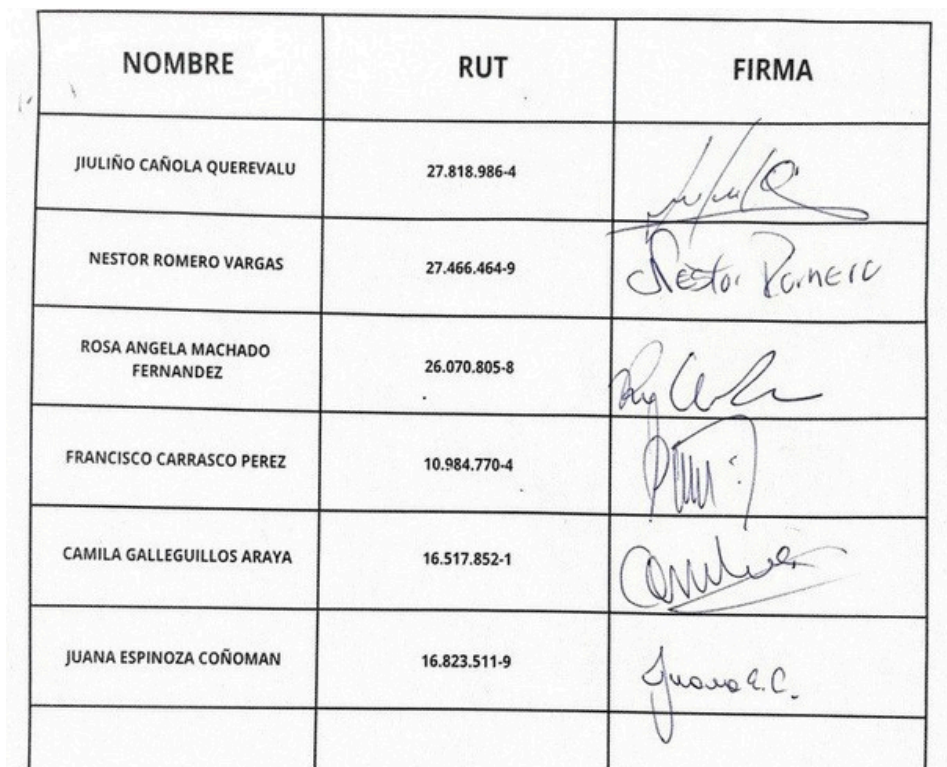 NOMBRE RUT FIRMA
JIULIÑO CAÑOLA QUEREVALU 27.818.986-4
NESTOR ROMERO VARGAS 27.466.464-9 Nestor Romero
ROSA ANGELA MACHADO
FERNANDEZ 26.070.805-8
FRANCISCO CARRASCO PEREZ 10.984.770-4
CAMILA GALLEGUILLOS ARAYA 16.517.852-1
JUANA ESPINOZA COÑOMAN 16.823.511-9 Juana E.C.